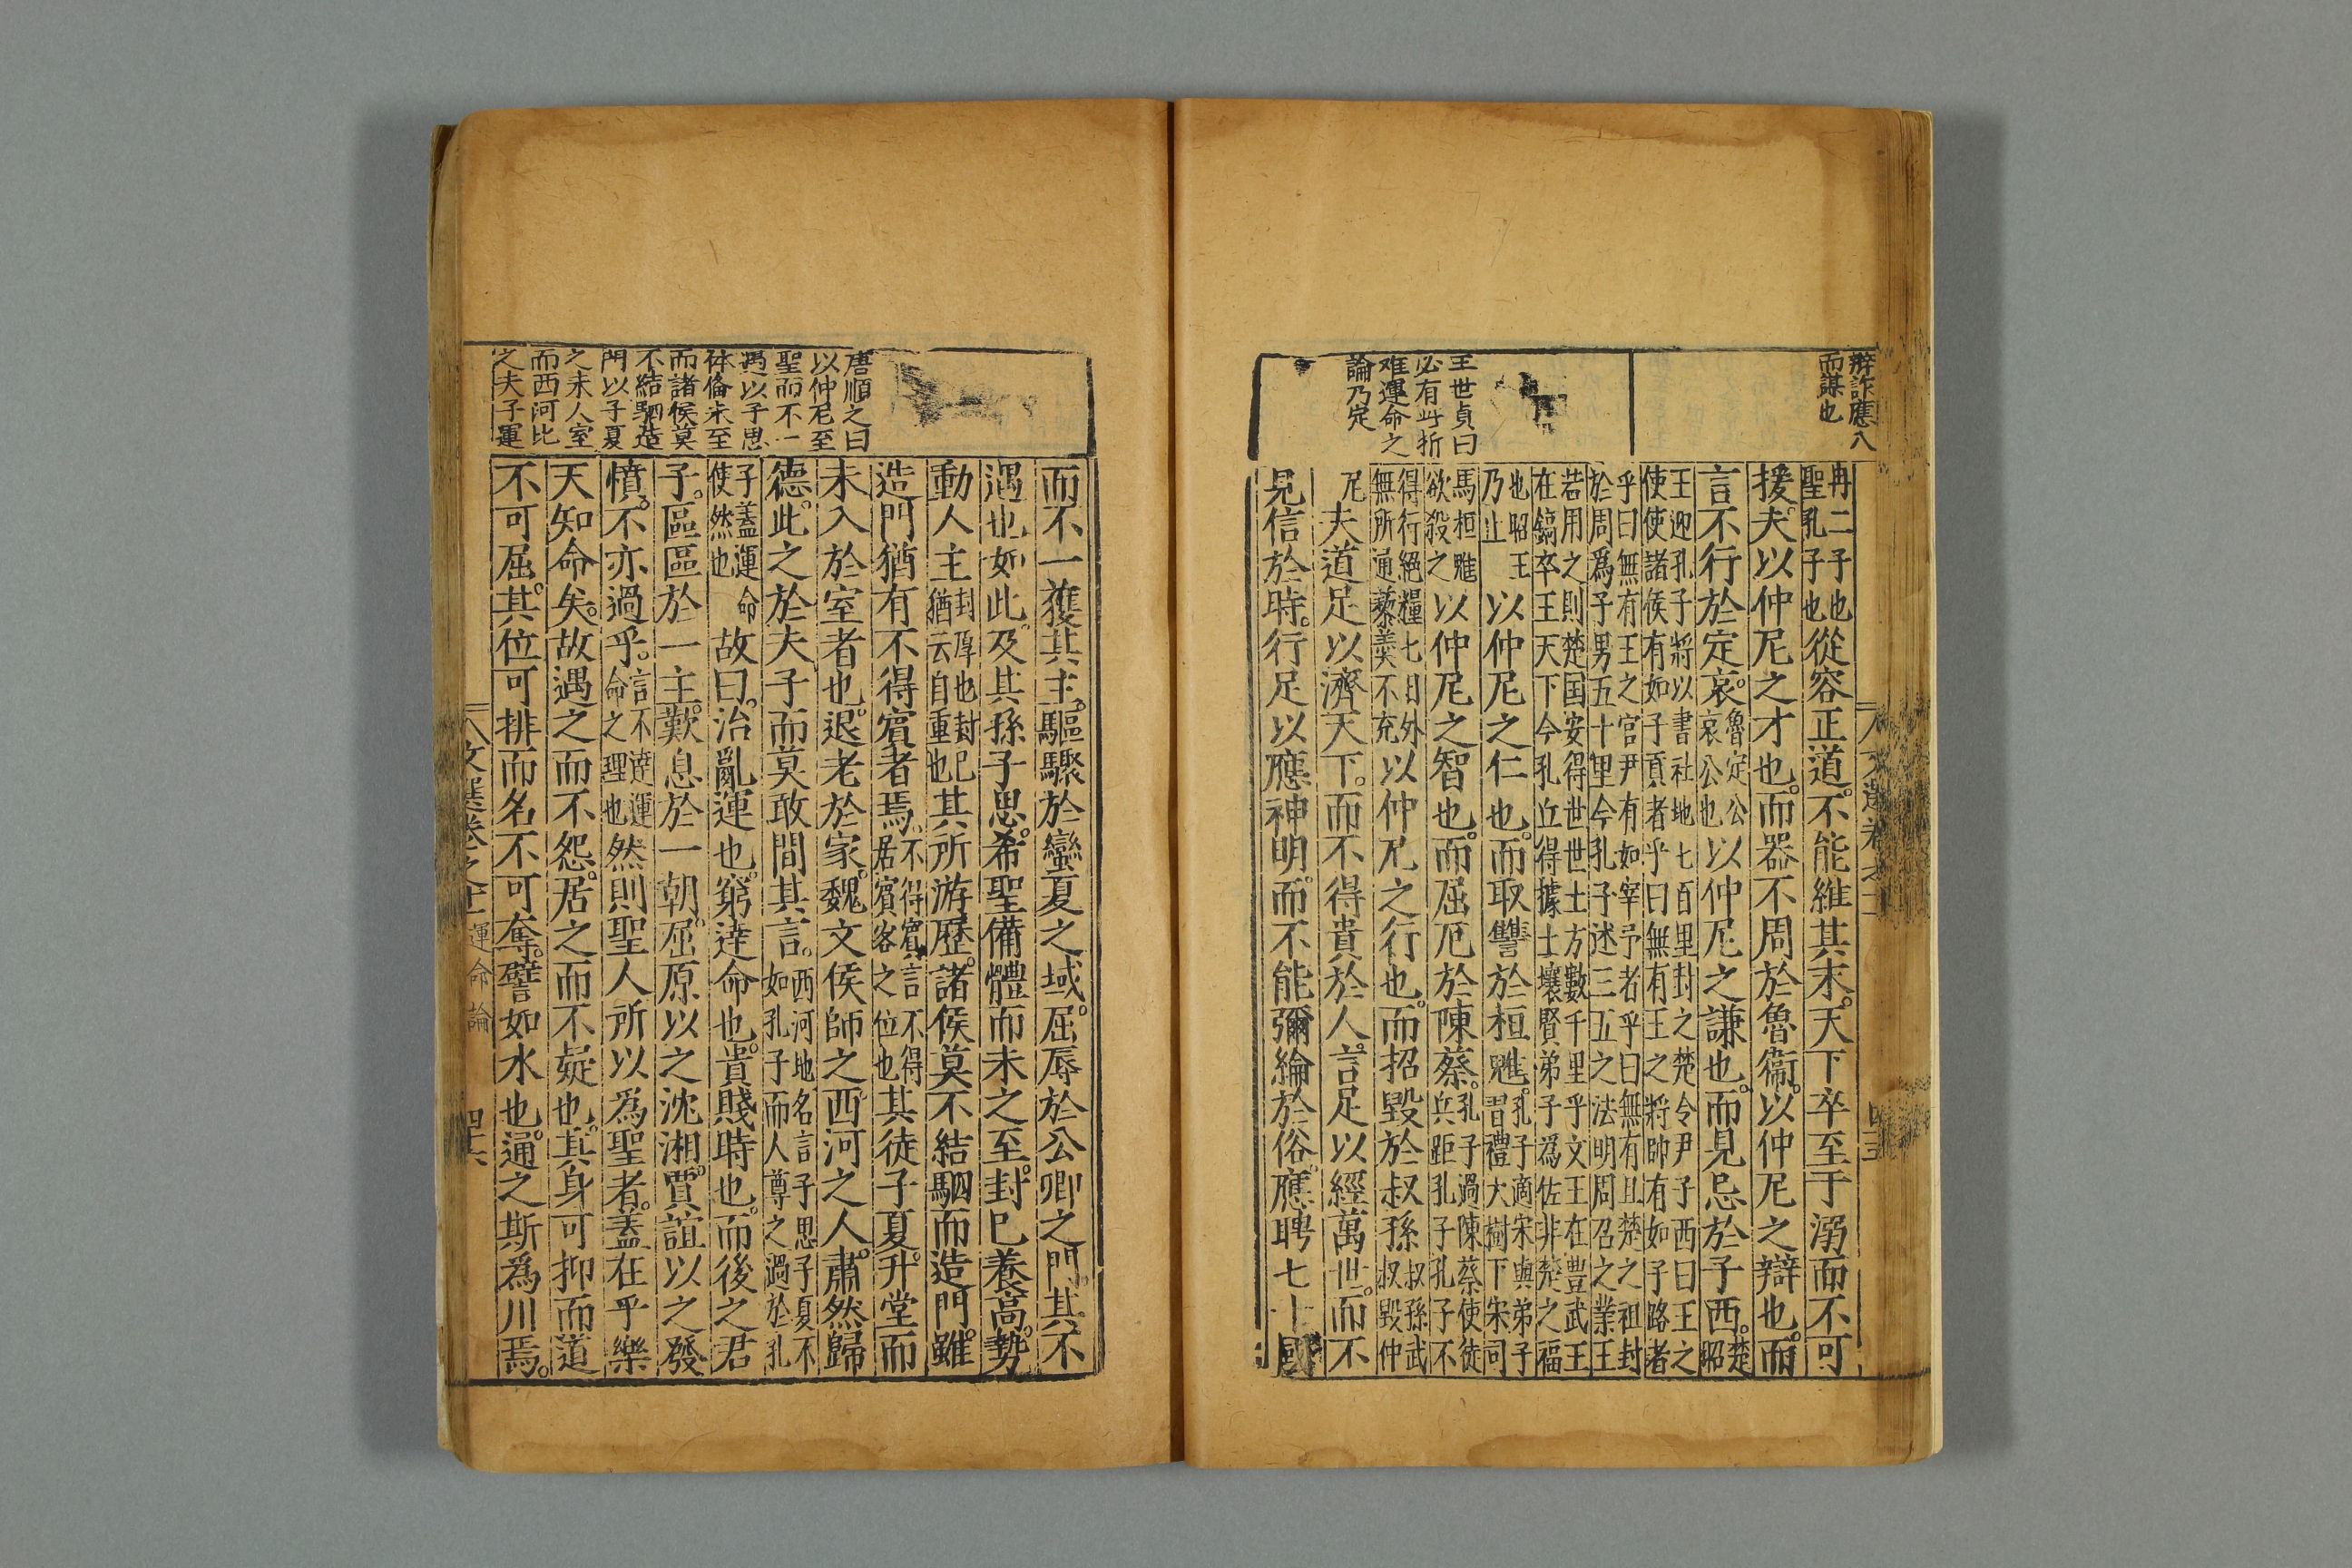 辯詐應八
而謀也
王世貞曰
必有此折
难運命之
論乃定
冉二子也
聖孔子也
從容正道。不能維其末。天下卒至于溺而不可
援。夫以仲尼之才也。而器不周於魯衞。以仲尼之辯也。而
言不行於定哀。
魯定公
哀公也
以仲尼之謙也。而見忌於子西。
楚
昭
王迎孔子將以書社地七百里封之楚令尹子西曰王之
使使諸候有如子貢者乎曰無有王之將帥有如子路者
乎曰無有王之官尹有如宰予者乎曰無有且楚之祖封
於周爲子男五十里今孔子述三五之法明周召之業王
若用之則楚国安得世世土方數千里乎文王在豊武王
在鎬卒王天下今孔丘得據士壤賢弟子為佐非楚之福
也昭王
乃止
以仲尼之仁也。而取讐於桓魋。
孔子適宋與弟子
習禮大樹下宋司
馬桓魋
欲殺之
以仲尼之智也。而屈厄於陳蔡。
孔子過陳蔡使徒
兵距孔子孔子不
得行絕糧七日外
無所通藜羹不充
以仲尼之行也。而招毀於叔孫
叔孫武
叔毀仲
尼
夫道足以濟天下。而不得貴於人。言足以經萬世。而不
見信於時。行足以應神明。而不能彌綸於俗。應聘七十國
文選卷之十一
四十五
唐順之曰
以仲尼至
聖而不一
遇以子思
体俻未至
而諸候莫
不結駟造
門以子夏
之未入室
而西河比
之夫子運
而不一獲其主。驅驟於蠻夏之域。屈辱於公卿之門。其不
遇也如此。及其孫子思。希聖備體而未之至。封已養高。勢
動人主
封厚也封已
猶云自重也
其所游歷。諸候莫不結駟而造門。雖
造門猶有不得賓者焉。
不得賓言不得
居賓客之位也
其徒子夏。升堂而
未入於室者也。退老於家。魏文侯師之西河之人。肅然歸
德。此之於夫子而莫敢間其言。
西河地名言子思子夏不
如孔子而人尊之過於孔
子蓋運命
使然也
故曰。治亂運也。窮達命也。貴賤時也。而後之君
子。區區於一主。歎息於一朝。屈原以之沈湘。賈誼以之發
憤。不亦過乎。
言不達運
命之理也
然則聖人所以爲聖者。蓋在乎樂
天知命矣。故遇之而不怨。居之而不疑也。其身可抑而道
不可屈。其位可排而名不可奪。譬如水也。通之斯爲川焉。
文選卷之十一
運命論
四十六